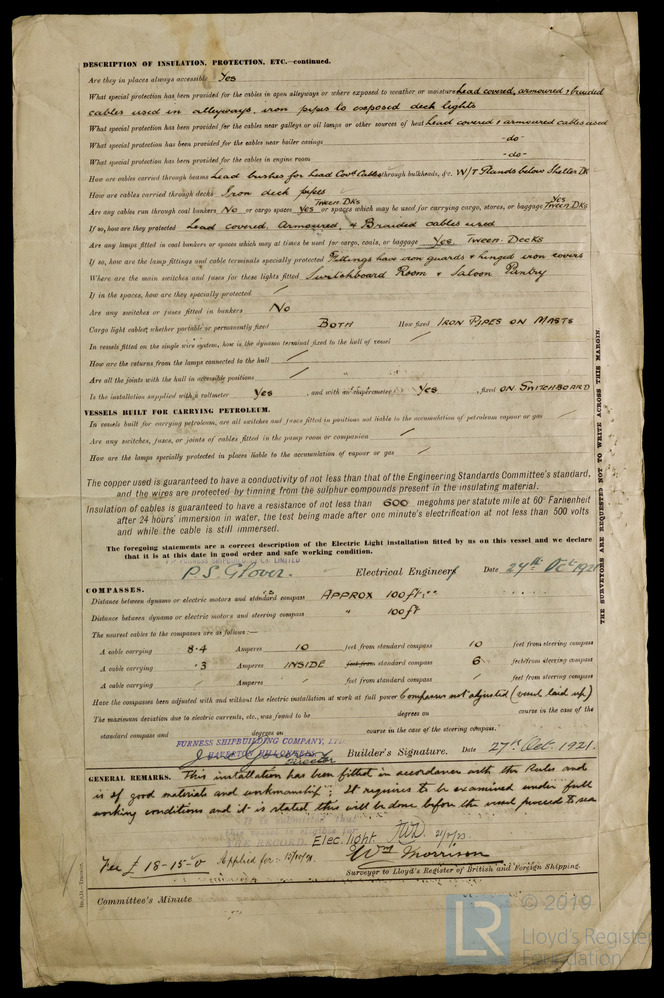 DESCRIPTION OF INSULATION, PROTECTION, ETC.—continued.
Are they in places always accessible Yes
What special protection has been provided for the cables in open alleyways or where exposed to weather or moisture Lead covered, armoured & braided
cables used in alleyways, iron pipes to exposed deck lights
What special protection has been provided for the cables near galleys or oil lamps or other sources of heat Lead covered & armoured cables used
What special protection has been provided for the cables near boiler casings -do-
What special protection has been provided for the cables in engine room -do-
How are cables carried through beams Lead bushes for Lead Covd Cables through bulkheads, &c. W/T Glands below Shelter Dk
How are cables carried through decks Iron deck pipes
Are any cables run through coal bunkers No or cargo spaces Yes Tween Dks or spaces which may be used for carrying cargo, stores, or baggage Yes Tween Dks
If so, how are they protected Lead covered, Armoured, & Braided cables used
Are any lamps fitted in coal bunkers or spaces which may at times be used for cargo, coals, or baggage Yes Tween Decks
If so, how are the lamp fittings and cable terminals specially protected Fittings have iron guards & hinged iron covers
Where are the main switches and fuses for these lights fitted Switchboard Room & Saloon Pantry
If in the spaces, how are they specially protected /
Are any switches or fuses fitted in bunkers No
Cargo light cables, whether portable or permanently fixed BOTH How fixed IRON PIPES ON MASTS
In vessels fitted on the single wire system, how is the dynamo terminal fixed to the hull of vessel /
How are the returns from the lamps connected to the hull /
Are all the joints with the hull in accessible positions /
Is the installation supplied with a voltmeter Yes , and with an amperemeter Yes , fixed ON SWITCHBOARD
VESSELS BUILT FOR CARRYING PETROLEUM.
In vessels built for carrying petroleum, are all switches and fuses fitted in positions not liable to the accumulation of petroleum vapour or gas /
Are any switches, fuses, or joints of cables fitted in the pump room or companion /
How are the lamps specially protected in places liable to the accumulation of vapour or gas /
The copper used is guaranteed to have a conductivity of not less than that of the Engineering Standards Committee's standard,
and the wires are protected by tinning from the sulphur compounds present in the insulating material.
Insulation of cables is guaranteed to have a resistance of not less than 600 megohms per statute mile at 60° Farhenheit
after 24 hours' immersion in water, the test being made after one minute's electrification at not less than 500 volts
and while the cable is still immersed.
The foregoing statements are a correct description of the Electric Light installation fitted by us on this vessel and we declare
that it is at this date in good order and safe working condition.
P.S. Glover. Electrical Engineers Date 27th Oct 1921
COMPASSES.
Distance between dynamo or electric motors and standard compass APPROX 100 ft.
Distance between dynamo or electric motors and steering compass " 100 ft
The nearest cables to the compasses are as follows:—
A cable carrying 8.4 Amperes 10 feet from standard compass 10 feet from steering compass
A cable carrying .3 Amperes INSIDE feet from standard compass 6 feet from steering compass
A cable carrying / Amperes / feet from standard compass / feet from steering compass
Have the compasses been adjusted with and without the electric installation at work at full power Compasses not adjusted (vessel laid up)
The maximum deviation due to electric currents, etc., was found to be degrees on course in the case of the
standard compass and degrees on course in the case of the steering compass.
FURNESS SHIPBUILDING COMPANY, LTD
HAVERTON HILL-ON-TEES
Director Builder's Signature. Date 27th Oct. 1921.
GENERAL REMARKS. This installation has been fitted in accordance with the Rules and
is of good materials and workmanship; It requires to be examined under full
working conditions and it is stated this will be done before the vessel proceeds to sea
It is submitted that
this vessel is eligible for
THE RECORD. Elec. light
Fee £ 18-15-0 Applied for
Wm Morrison
Surveyor to Lloyd's Register of British and Foreign Shipping.
Committee's Minute
THE SURVEYORS ARE REQUESTED NOT TO WRITE ACROSS THIS MARGIN.
LR
© 2019
Lloyd's Register
Foundation